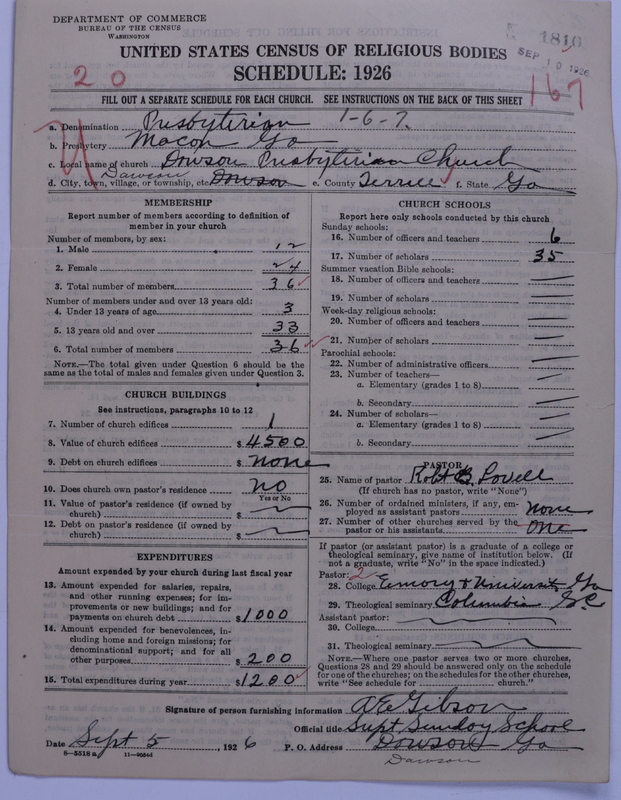 DEPARTMENT OF COMMERCE
BUREAU OF THE CENSUS
WASHINGTON
1810
SEP 10 1926
UNITED STATES CENSUS OF RELIGIOUS BODIES
20
SCHEDULE: 1926
167
FILL OUT A SEPARATE SCHEDULE FOR EACH CHURCH. SEE INSTRUCTIONS ON THE BACK OF THIS SHEET
a. Denomination Presbyterian 1-6-7.
b. Presbytery Macon Ga
c. Local name of church Dawson Presbyterian Church
Dawson
d. City, town, village, or township, etc. Dawson e. County Terrell f. State Ga
MEMBERSHIP
Report number of members according to definition of
member in your church
Number of members, by sex:
1. Male 12
2. Female 24
3. Total number of members 36
Number of members under and over 13 years old:
4. Under 13 years of age 3
5. 13 years old and over 33
6. Total number of members 36
NOTE.—The total given under Question 6 should be
same as the total of males and females given under Question 3.
CHURCH BUILDINGS
See instructions, paragraphs 10 to 12
7. Number of church edifices 1
8. Value of church edifices $ 4500
9. Debt on church edifices $ none
10. Does church own pastor's residence no
Yes or No
11. Value of pastor's residence (if owned by
church) $
12. Debt on pastor's residence (if owned by
church) $
EXPENDITURES
Amount expended by your church during last fiscal year
13. Amount expended for salaries, repairs,
and other running expenses; for im-
provements or new buildings; and for
payments on church debt $ 1000
14. Amount expended for benevolences, in-
cluding home and foreign missions; for
denominational support; and for all
other purposes $ 200
15. Total expenditures during year $ 1200
CHURCH SCHOOLS
Report here only schools conducted by this church
Sunday schools:
16. Number of officers and teachers 6
17. Number of scholars 35
Summer vacation Bible schools:
18. Number of officers and teachers
19. Number of scholars
Week-day religious schools:
20. Number of officers and teachers
21. Number of scholars
Parochial schools:
22. Number of administrative officers
23. Number of teachers—
a. Elementary (grades 1 to 8)
b. Secondary
24. Number of scholars—
a. Elementary (grades 1 to 8)
b. Secondary
PASTOR
25. Name of pastor Robt B Lovell
(If church has no pastor, write "None")
26. Number of ordained ministers, if any, em-
ployed as assistant pastors none
27. Number of other churches served by the
pastor or his assistants one
If pastor (or assistant pastor) is a graduate of a college or
theological seminary, give name of institution below. (If
not a graduate, write "No" in the space indicated.)
Pastor: 2
28. College Emory University Ga
29. Theological seminary Columbia S.C
Assistant pastor:
30. College
31. Theological seminary
NOTE.—Where one pastor serves two or more churches,
Questions 28 and 29 should be answered only on the schedule
for one of the churches; on the schedules for the other churches,
write "See schedule for church."
Signature of person furnishing information Gibson
Official title Supt Sunday School
Date Sept 5, 1926 P. O. Address Dawson Ga
Dawson